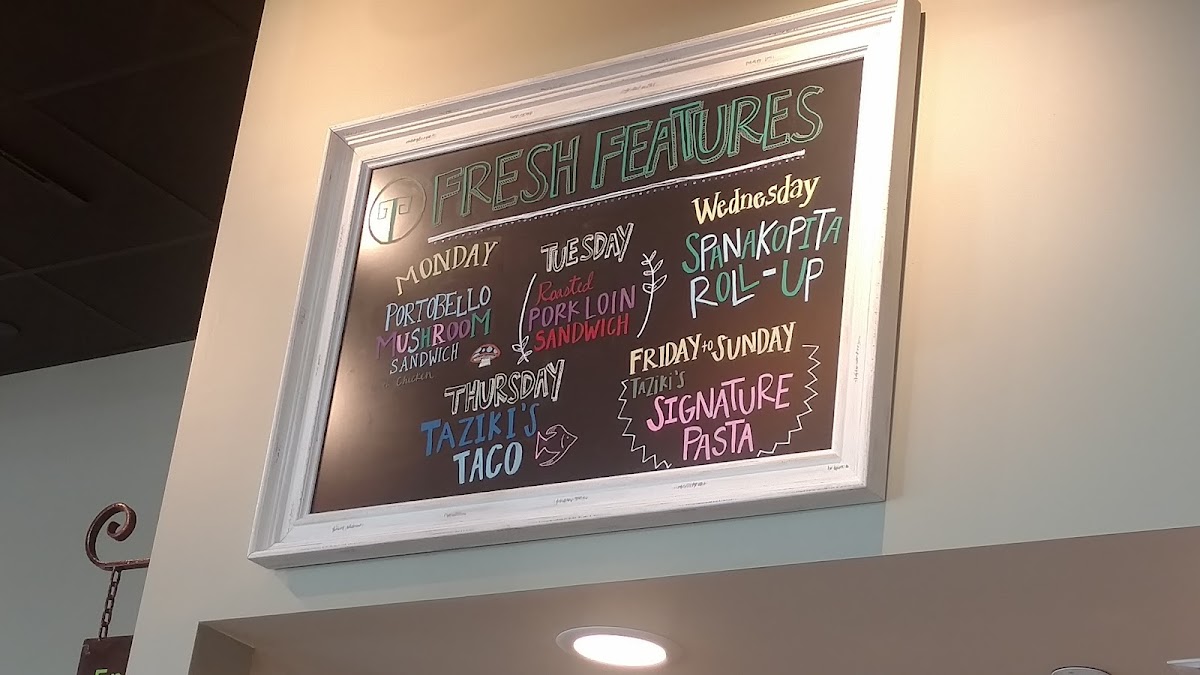 FRESH FEATURES
MONDAY
PORTOBELLO
MUSHROOM
SANDWICH
Chicken
TUESDAY
Roasted
PORK LOIN
SANDWICH
Wednesday
SPANAKOPITA
ROLL-UP
THURSDAY
TAZIKI'S
TACO
FRIDAY to SUNDAY
TAZIKI'S
SIGNATURE
PASTA